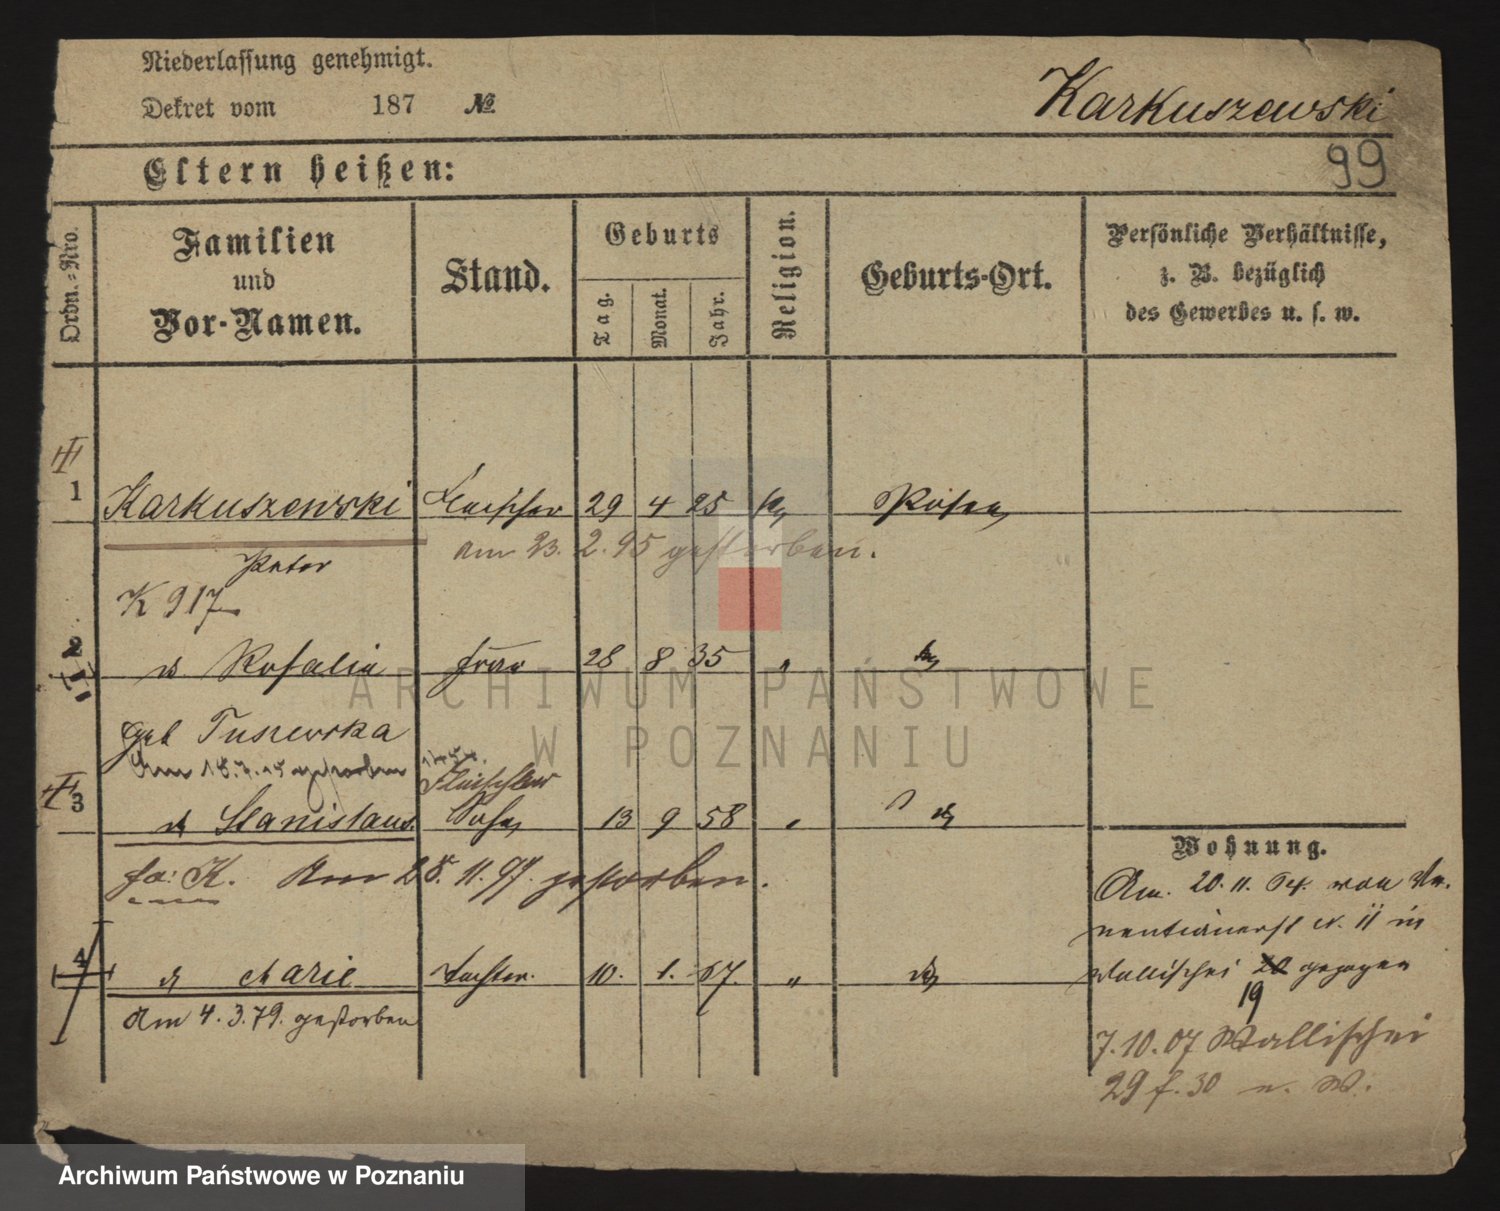 Niederlassung genehmigt.
Dekret vom 187 №
Karkuszewski
99
Eltern heißen:
Ordn.-Nro.
Familien
und
Vor-Namen.
Stand.
Geburts
Tag.
Monat.
Jahr.
Religion.
Geburts-Ort.
Persönliche Verhältnisse,
z. B. bezüglich
des Gewerbes u. s. w.
1 Karkuszewski Fleischer 29 4 25 Posen
am 23. 2. 95 gestorben.
Peter
K 917
2 Rosalia Frau 28 8 35 "
geb Tuszewska
Am 18.7.15 gestorben
Fleischer
3 Stanislaus. Sohn 13 9 58 "
K. Am 28. 11. 97. gestorben.
4 Marie Tochter. 10. 1. 67. "
Am 4. 3. 79. gestorben
Wohnung.
Am. 20. 11. von
11 in
Wallischei 20 gezogen
19
7.10.07 Wallischei
29 f. 30 n. W.
ARCHIWUM PAŃSTWOWE
W POZNANIU
Archiwum Państwowe w Poznaniu